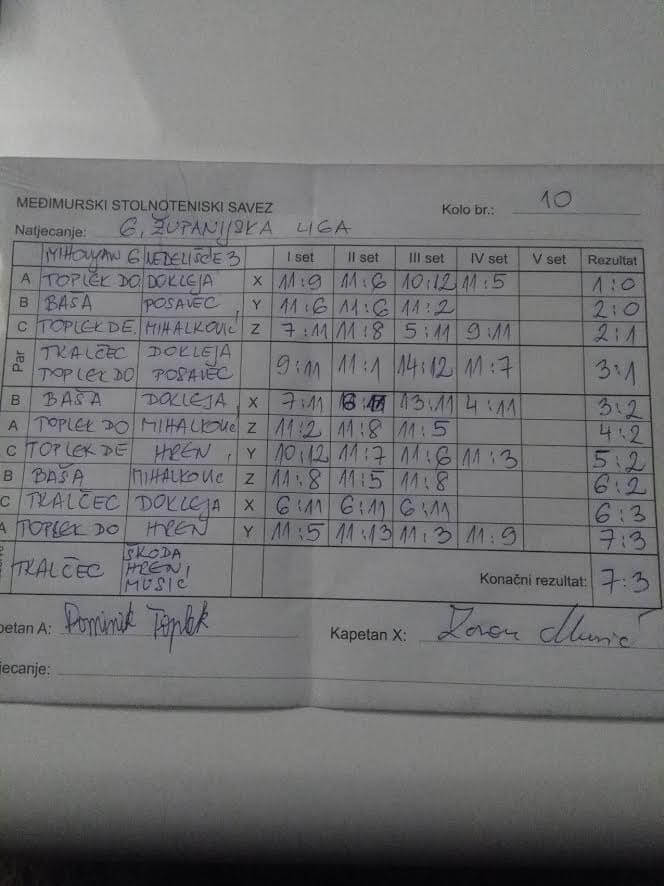 MEĐIMURSKI STOLNOTENISKI SAVEZ
Kolo br.: 10
Natjecanje: 6. ŽUPANIJSKA LIGA
MIHOVLJAN 6 NEDELIŠĆE 3 I set II set III set IV set V set Rezultat
A TOPLEK DO DOKLEJA X 11:9 11:6 10:12 11:5 1:0
B BAŠA POSAVEC Y 11:6 11:6 11:2 2:0
C TOPLEK DE. MIHALKOVIĆ Z 7:11 11:8 5:11 9:11 2:1
Par TKALČEC DOKLEJA 9:11 11:1 14:12 11:7 3:1
TOPLEK DO POSAVEC
B BAŠA DOKLEJA X 7:11 13:11 4:11 3:2
A TOPLEK DO MIHALKOVIĆ Z 11:2 11:8 11:5 4:2
C TOPLEK DE HREN Y 10:12 11:7 11:6 11:3 5:2
B BAŠA MIHALKOVIĆ Z 11:8 11:5 11:8 6:2
C TKALČEC DOKLEJA X 6:11 6:11 6:11 6:3
A TOPLEK DO HREN Y 11:5 11:13 11:3 11:9 7:3
TKALČEC ŠKODA
HREN,
MUSIĆ
Konačni rezultat: 7:3
petan A: Dominik Toplek Kapetan X: Zoran Musić
jecanje: